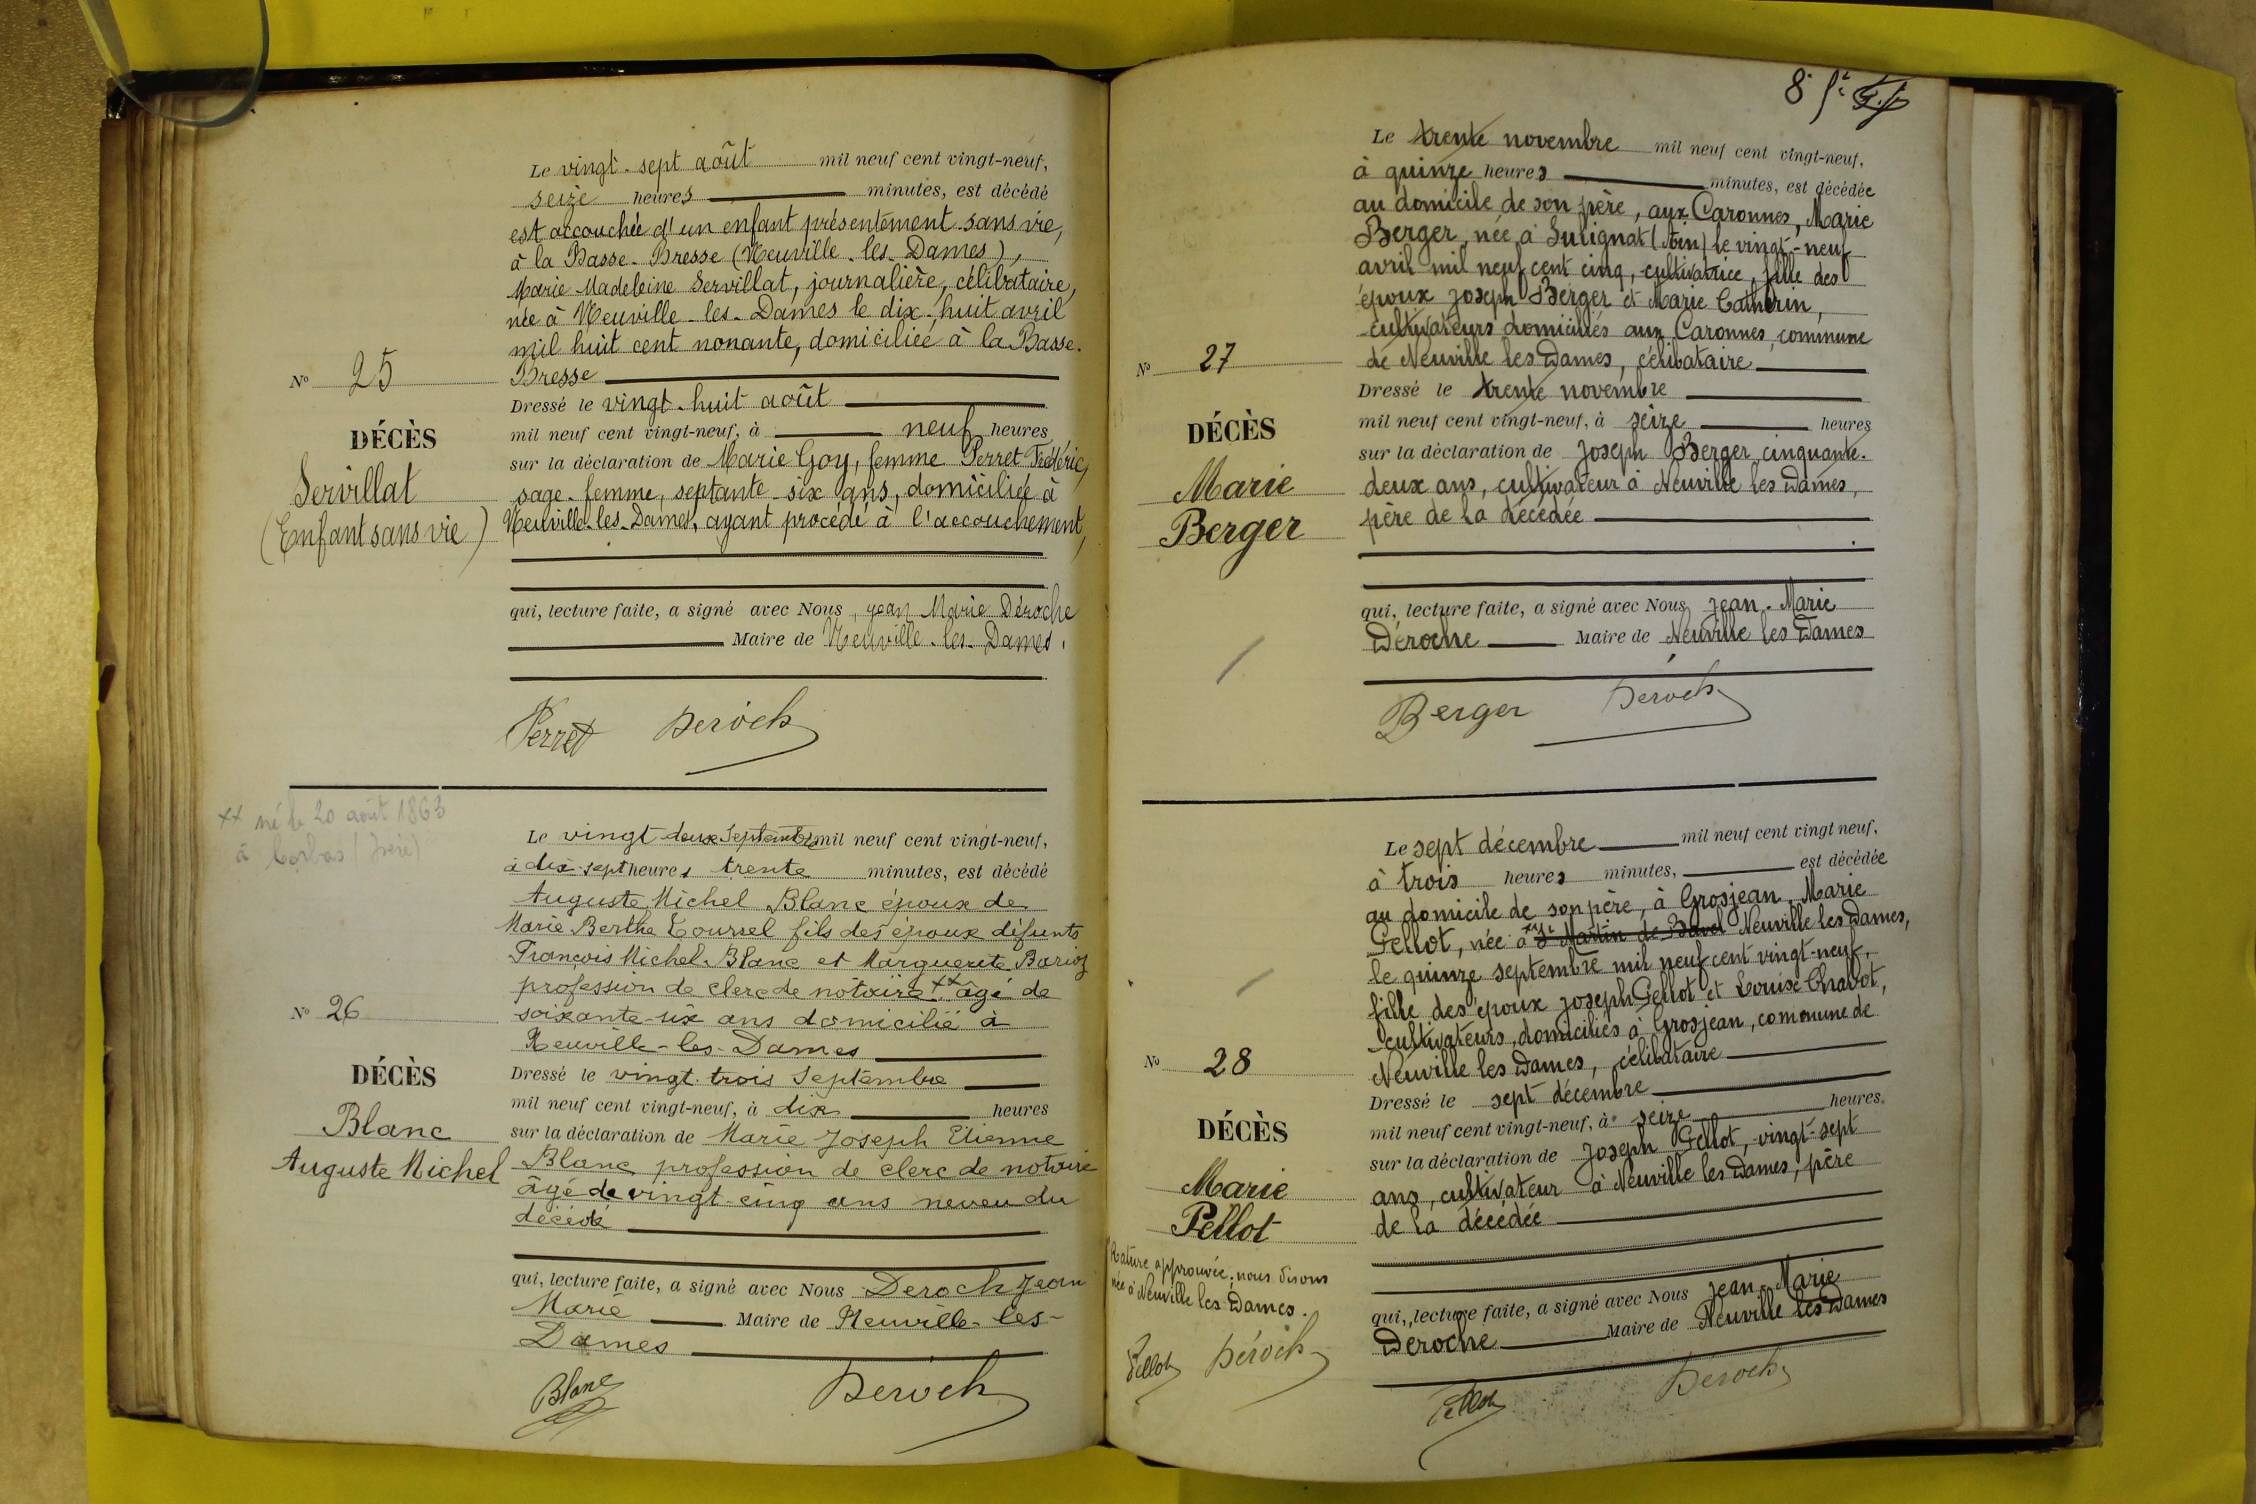 Le vingt-sept août mil neuf cent vingt-neuf,
seize heures minutes, est décédé
est accouchée d'un enfant présentement sans vie,
à la Basse-Bresse (Neuville-les-Dames),
Marie Madeleine Servillat, journalière, célibataire,
née à Neuville-les-Dames le dix-huit avril
mil huit cent nonante, domiciliée à la Basse-
Bresse
Dressé le vingt-huit août
mil neuf cent vingt-neuf, à neuf heures
sur la déclaration de Marie Goy, femme Perret Frédéric,
sage-femme, septante-six ans, domiciliée à
Neuville-les-Dames, ayant procédé à l'accouchement,
qui, lecture faite, a signé avec Nous, jean Marie Déroche
Maire de Neuville-les-Dames.
Nº 25
DÉCÈS
Servillat
(Enfant sans vie)
Perret Déroch
Le vingt deux Septembre mil neuf cent vingt-neuf,
à dix-sept heures trente minutes, est décédé
Auguste Michel Blanc époux de
Marie Berthe Lourel fils des époux défunts
François Michel Blanc et Marguerite Barioz
profession de clerc de notaire xx âgé de
soixante-six ans domicilié à
Neuville-les-Dames
Dressé le vingt-trois Septembre
mil neuf cent vingt-neuf, à dix heures
sur la déclaration de Marie Joseph Etienne
Blanc profession de clerc de notaire
âgé de vingt-cinq ans neveu du
décédé
qui, lecture faite, a signé avec Nous Deroch Jean
Marie Maire de Neuville-les-
Dames
xx né le 20 août 1863
à Corbas (Isère)
Nº 26
DÉCÈS
Blanc
Auguste Michel
Blanc Déroch
8
Le trente novembre mil neuf cent vingt-neuf,
à quinze heures minutes, est décédée
au domicile de son père, aux Caronnes, Marie
Berger, née à Sulignat (Ain) le vingt-neuf
avril mil neuf cent cinq, cultivatrice, fille des
époux Joseph Berger et Marie Catherin,
cultivateurs domiciliés aux Caronnes, commune
de Neuville les Dames, célibataire
Dressé le trente novembre
mil neuf cent vingt-neuf, à seize heures
sur la déclaration de Joseph Berger, cinquante-
deux ans, cultivateur à Neuville les Dames,
père de la décédée
qui, lecture faite, a signé avec Nous Jean-Marie
Déroche Maire de Neuville les Dames
Nº 27
DÉCÈS
Marie
Berger
Berger Déroch
Le sept décembre mil neuf cent vingt neuf,
à trois heures minutes, est décédée
au domicile de son père, à Grosjean, Marie
Pellot, née à St Martin de Bavel Neuville les Dames,
le quinze septembre mil neuf cent vingt-neuf,
fille des époux Joseph Pellot et Louise Chavot,
cultivateurs, domiciliés à Grosjean, commune de
Neuville les Dames, célibataire
Dressé le sept décembre
mil neuf cent vingt-neuf, à seize heures
sur la déclaration de Joseph Pellot, vingt-sept
ans, cultivateur à Neuville les Dames, père
de la décédée
qui, lecture faite, a signé avec Nous Jean-Marie
Déroche Maire de Neuville les Dames
Nº 28
DÉCÈS
Marie
Pellot
Rature approuvée; nous disons
née à Neuville les Dames.
Pellot Déroch
Pellot Déroch